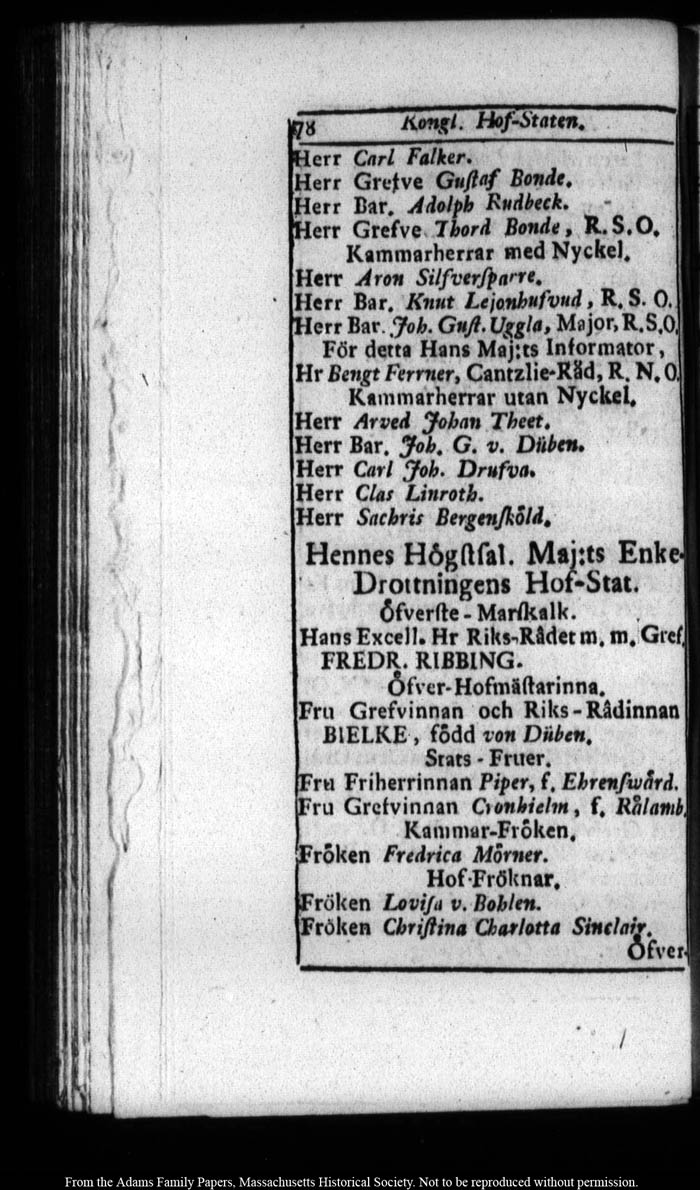 78 Kongl. Hof-Staten.
Herr Carl Falker.
Herr Grefve Guſtaf Bonde.
Herr Bar. Adolph Rudbeck.
Herr Grefve Thord Bonde, R.S.O.
Kammarherrar med Nyckel.
Herr Aron Silfverſparre.
Herr Bar. Knut Lejonhufvud, R. S. O.
Herr Bar. Joh. Guſt. Uggla, Major, R.S.O.
För detta Hans Maj:ts Informator,
Hr Bengt Ferrner, Cantzlie-Råd, R. N. O.
Kammarherrar utan Nyckel.
Herr Arved Johan Theet.
Herr Bar. Joh. G. v. Düben.
Herr Carl Joh. Drufva.
Herr Clas Linroth.
Herr Sachris Bergenſköld.
Hennes Högſtſal. Maj:ts Enke-
Drottningens Hof-Stat.
Öfverſte-Marſkalk.
Hans Excell. Hr Riks-Rådet m. m. Gref.
FREDR. RIBBING.
Öfver-Hofmäſtarinna.
Fru Grefvinnan och Riks-Rådinnan
BIELKE, född von Düben.
Stats-Fruer.
Fru Friherrinnan Piper, f. Ehrenſwärd.
Fru Grefvinnan Cronhielm, f. Rålamb.
Kammar-Fröken.
Fröken Fredrica Mörner.
Hof-Fröknar.
Fröken Loviſa v. Bohlen.
Fröken Chriſtina Charlotta Sinclair.
Öfver-
From the Adams Family Papers, Massachusetts Historical Society. Not to be reproduced without permission.